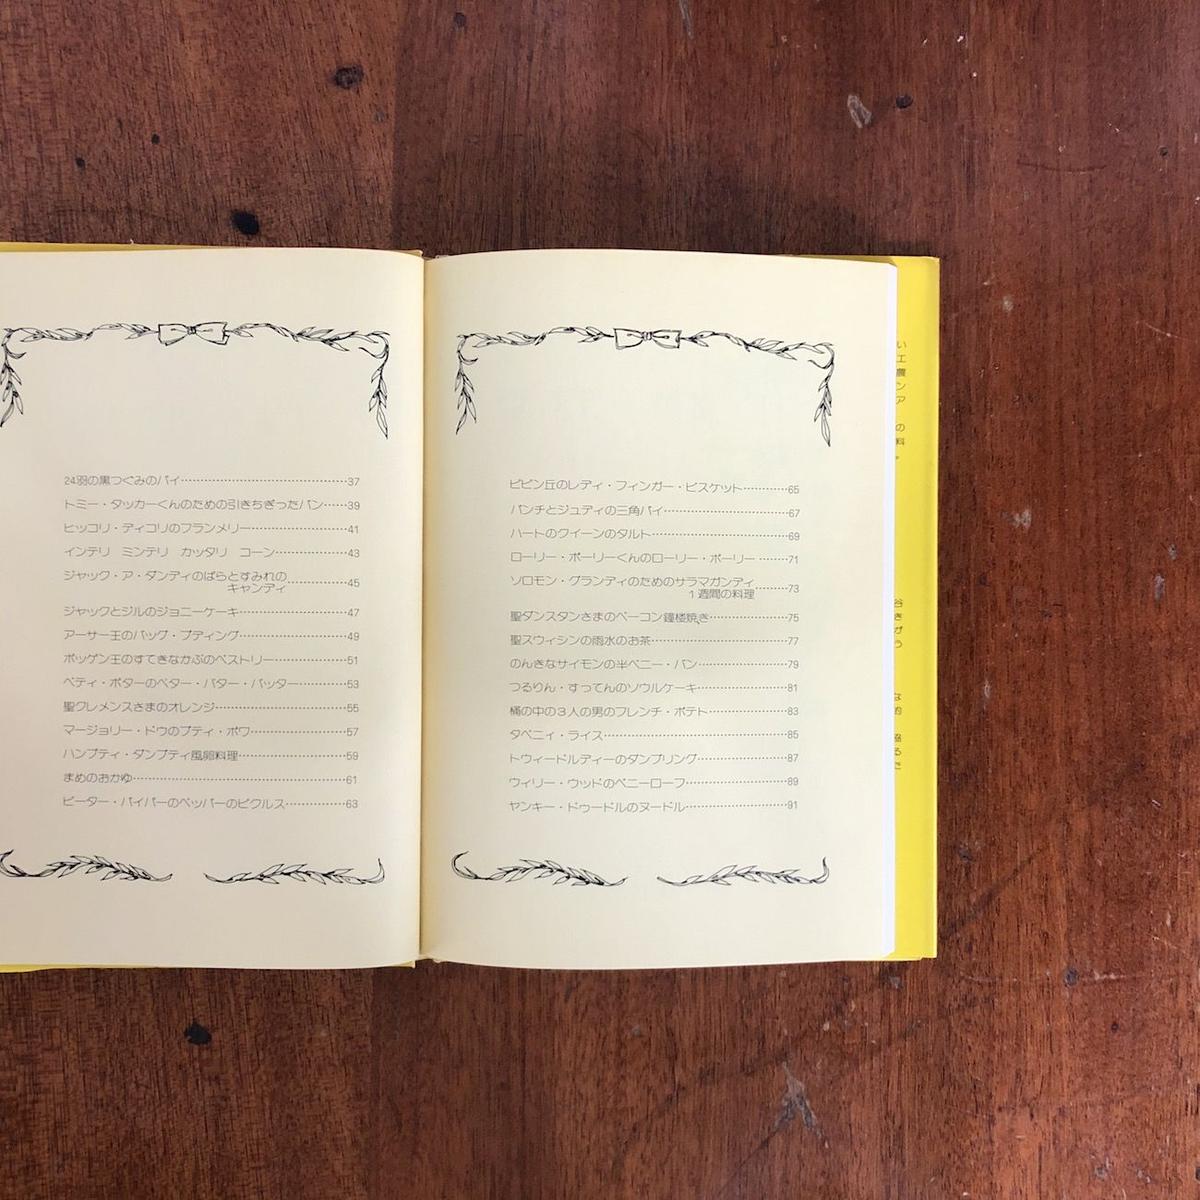 24羽の黒つぐみのパイ……37
トミー・タッカーくんのための引きちぎったパン……39
ヒッコリ・ディコリのフランメリー……41
インテリ ミンテリ カッタリ コーン……43
ジャック・ア・ダンディのばらとすみれの
キャンディ……45
ジャックとジルのジョニーケーキ……47
アーサー王のバッグ・プディング……49
ボッゲン王のすてきなかぶのペストリー……51
ベティ・ボターのベター・バター・バッター……53
聖クレメンスさまのオレンジ……55
マージョリー・ドゥのプティ・ポワ……57
ハンプティ・ダンプティ風卵料理……59
まめのおかゆ……61
ピーター・パイパーのペッパーのピクルス……63
ピピン丘のレディ・フィンガー・ビスケット……65
パンチとジュディの三角パイ……67
ハートのクイーンのタルト……69
ローリー・ポーリーくんのローリー・ポーリー……71
ソロモン・グランディのためのサラマガンディ
1週間の料理……73
聖ダンスタンさまのベーコン鐘楼焼き……75
聖スウィシンの雨水のお茶……77
のんきなサイモンの半ペニー・パン……79
つるりん・すってんのソウルケーキ……81
桶の中の3人の男のフレンチ・ポテト……83
タペニィ・ライス……85
トウィードルディーのダンプリング……87
ウィリー・ウッドのペニーローフ……89
ヤンキー・ドゥードルのヌードル……91